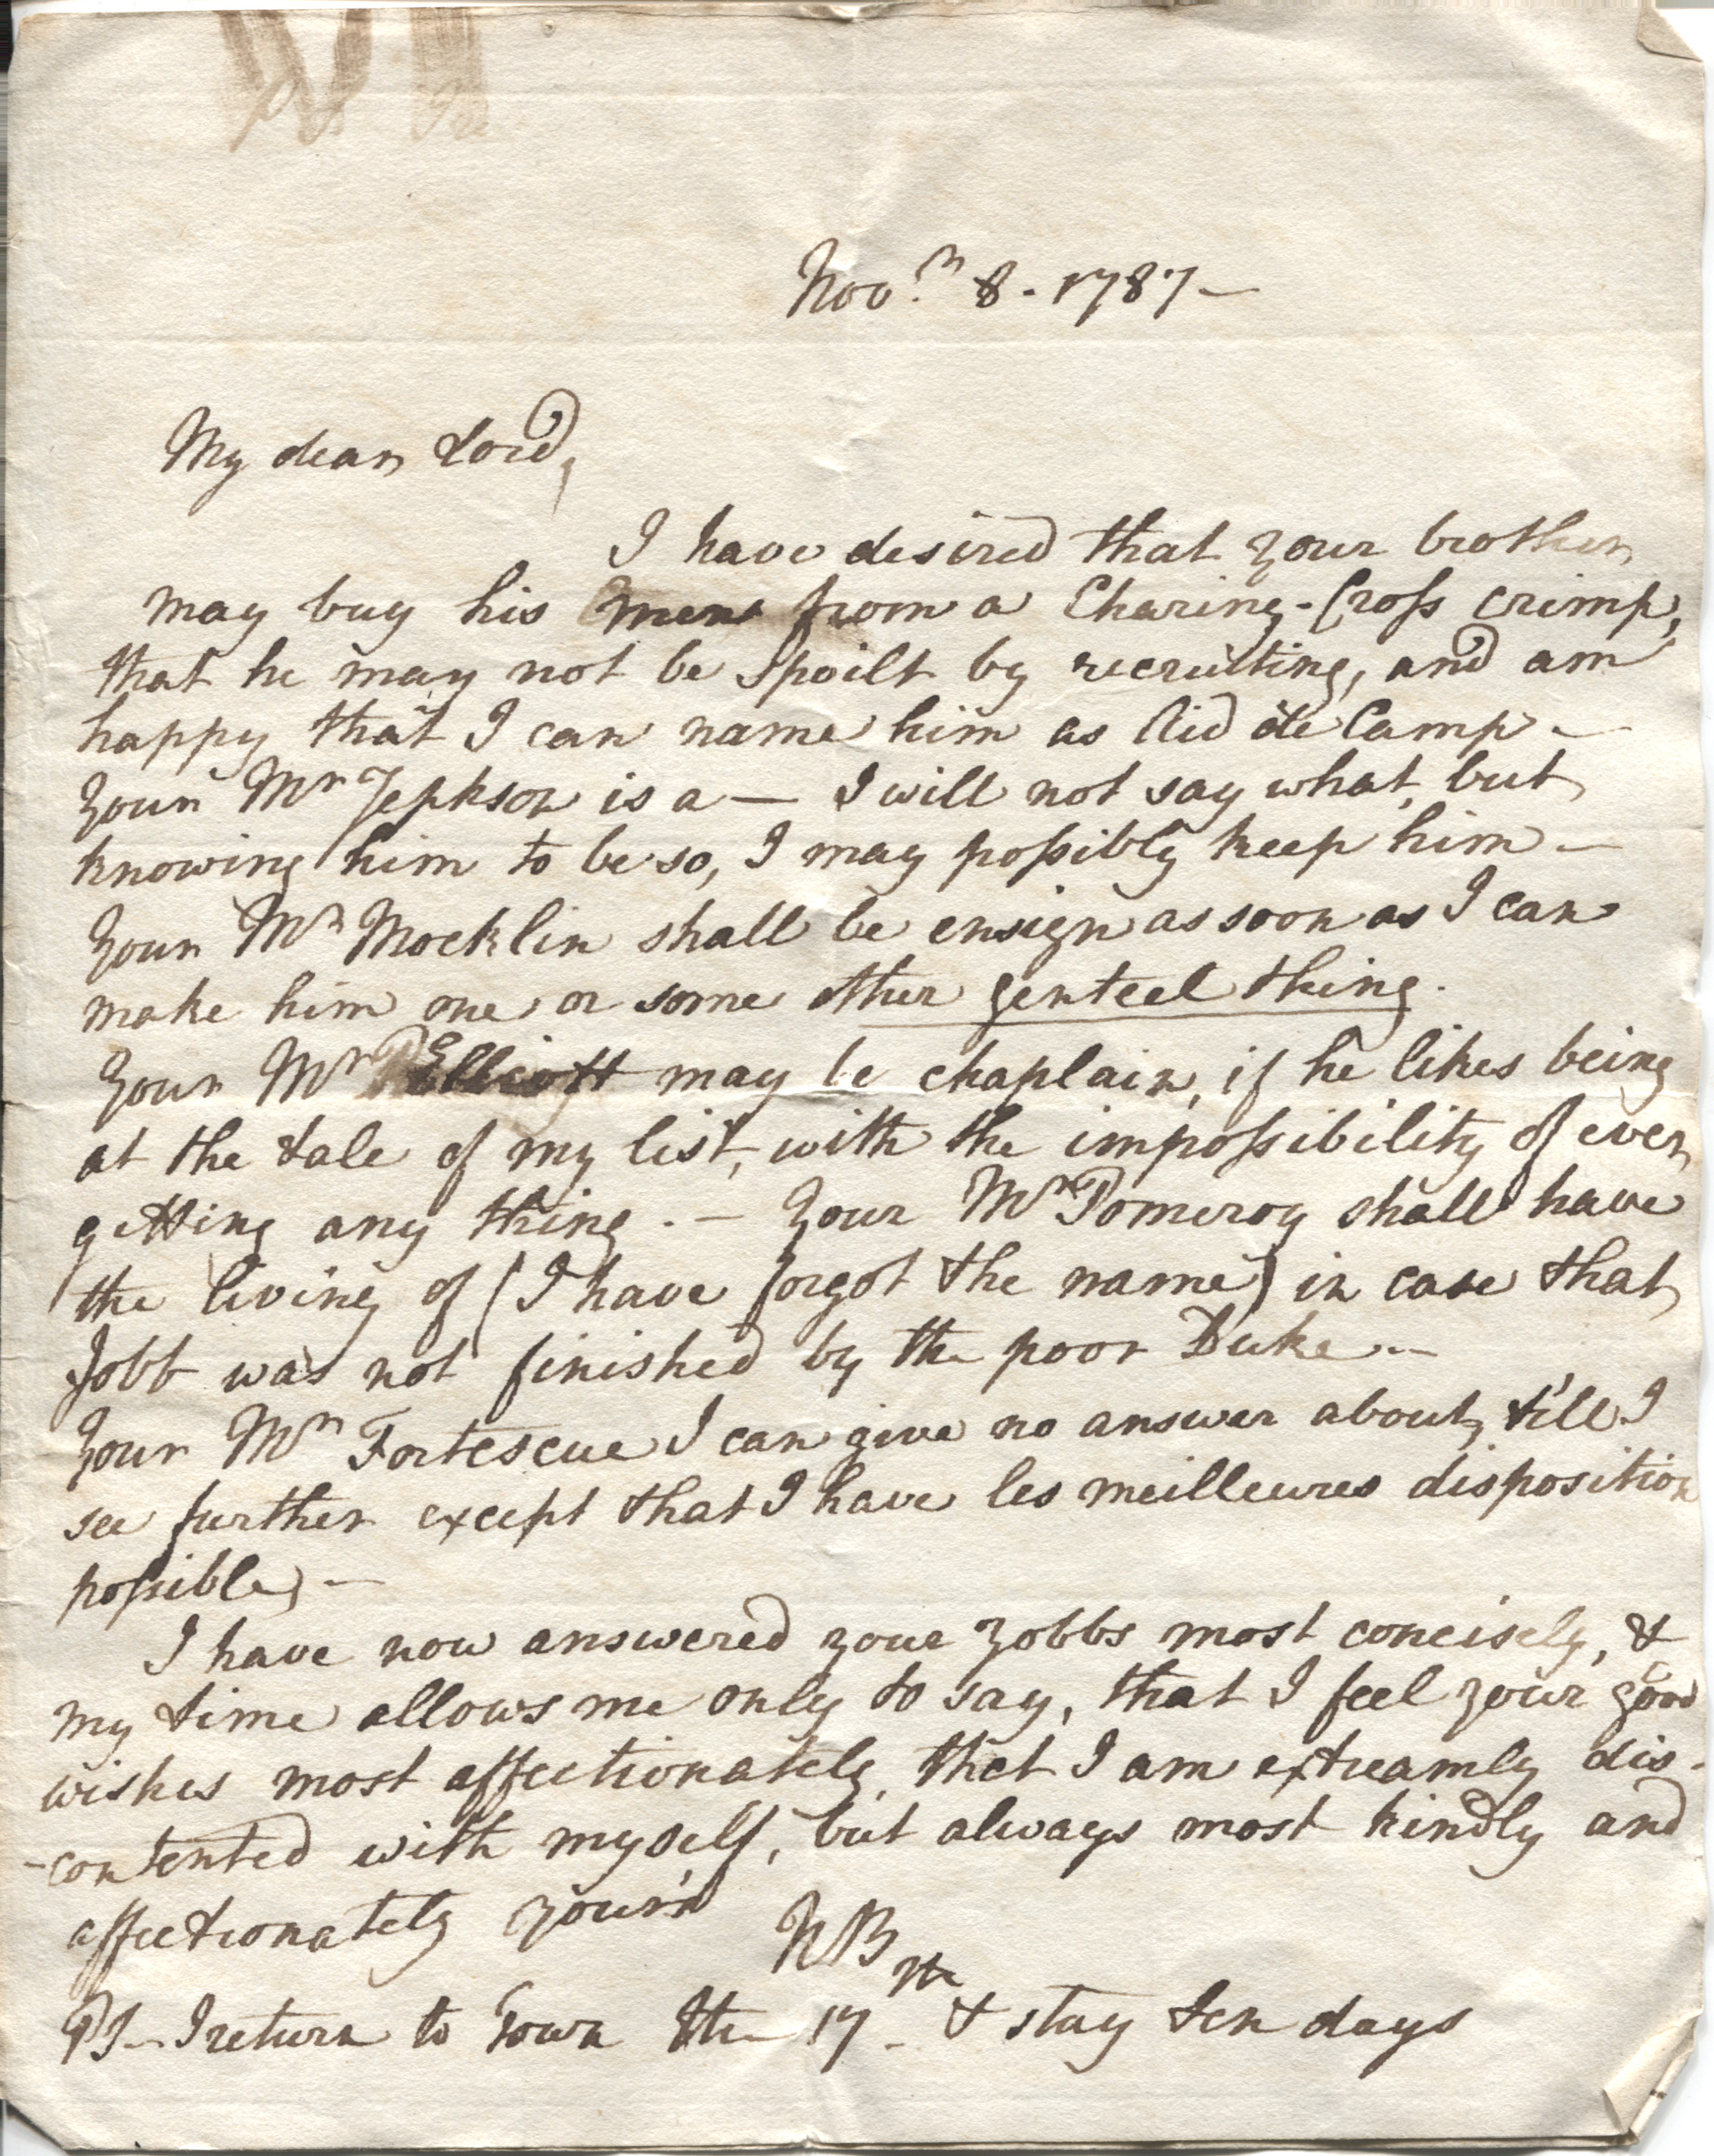 Nov.r 8. 1787—
My dear Lord,
I have desired that your brother
may buy his men from a Charing-Cross crimp,
that he may not be spoilt by recruiting, and am
happy that I can name him as Aid de Camp—
Your Mr Jephson is a — I will not say what, but
knowing him to be so, I may possibly keep him—
Your Mr Mocklin shall be ensign as soon as I can
make him one or some other genteel thing.
Your Mr Elliott may be chaplain, if he likes being
at the tale of my list, with the impossibility of ever
getting any thing.— Your Mr Pomeroy shall have
the living of (I have forgot the name) in case that
Jobb was not finished by the poor Duke.—
Your Mr Fortescue I can give no answer about, till I
see further except that I have les meilleures disposition
possible,—
I have now answered your Jobbs most concisely, &
my time allows me only to say, that I feel your good
wishes most affectionately, that I am extreamly dis-
-contented with myself, but always most kindly and
affectionately your's
NB
PS— I return to Town the 17th & stay ten days